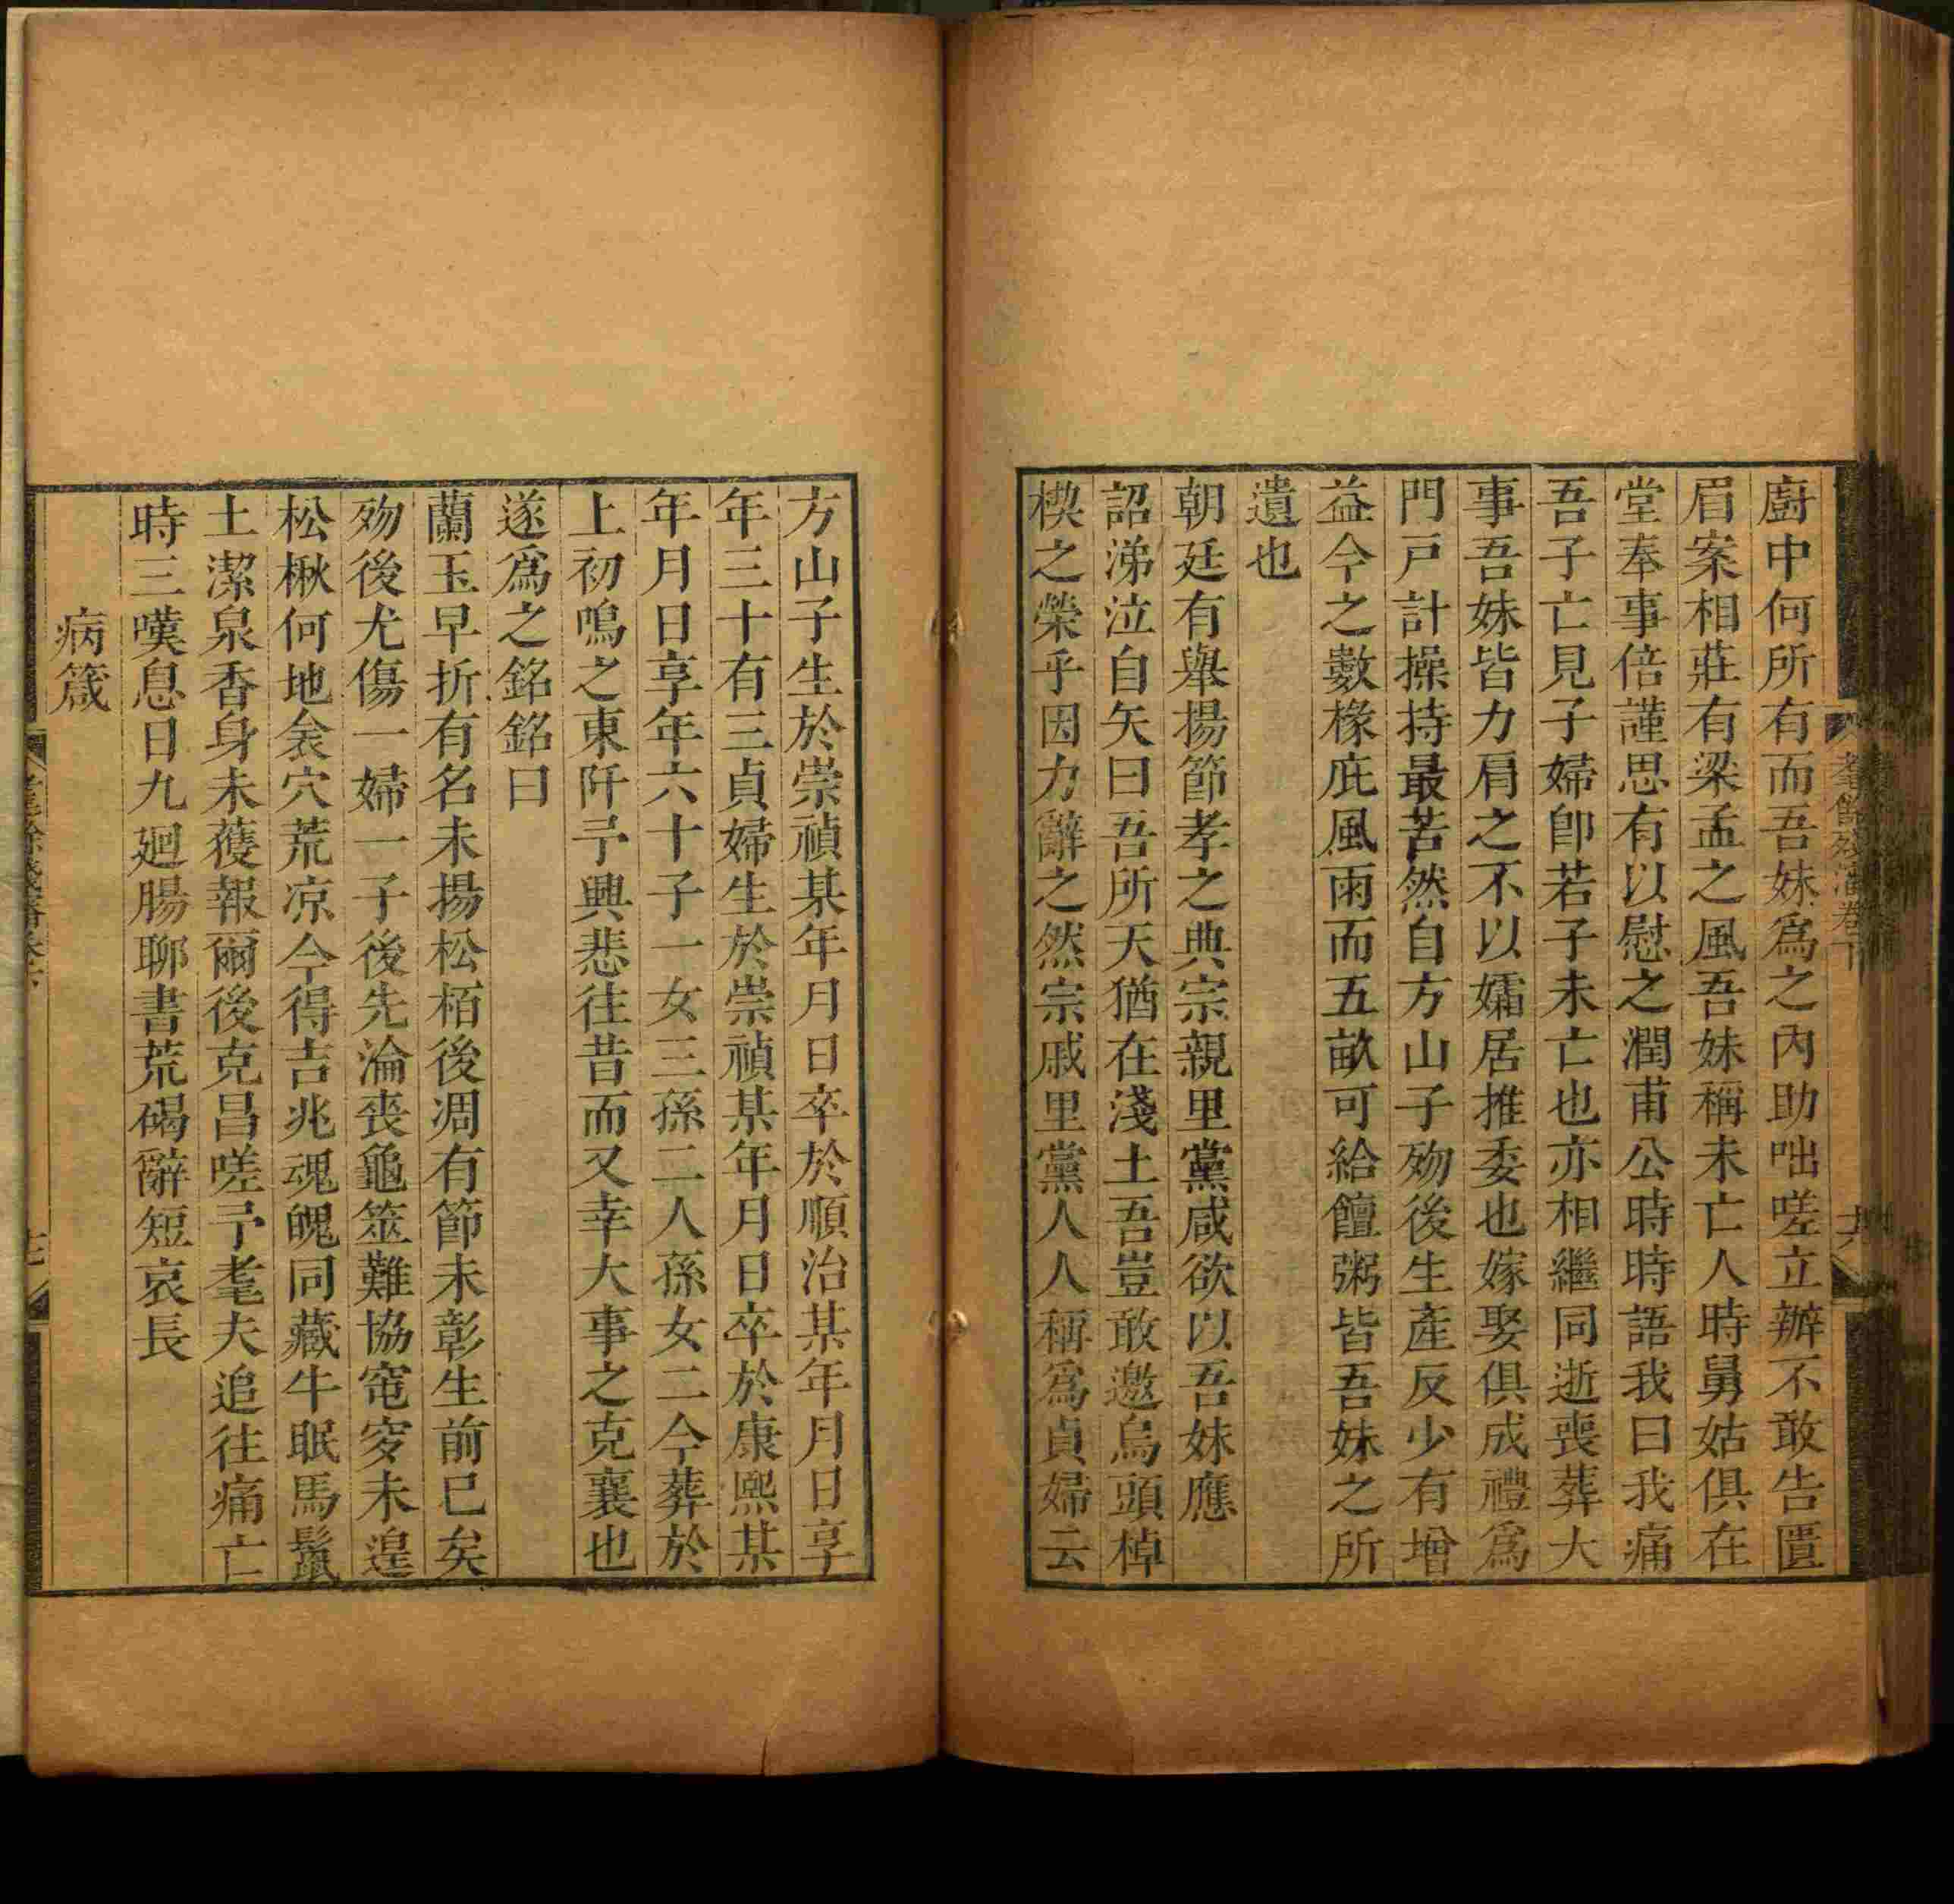 廚中何所有而吾妹爲之內助咄嗟立辦不敢告匱
眉案相莊有梁孟之風吾妹稱未亡人時舅姑俱在
堂奉事倍謹思有以慰之潤甫公時時語我曰我痛
吾子亡見子婦卽若子未亡也亦相繼同逝喪葬大
事吾妹皆力肩之不以孀居推委也嫁娶俱成禮爲
門戸計操持最苦然自方山子歿後生產反少有增
益今之數椽庇風雨而五畝可給饘粥皆吾妹之所
遺也
朝廷有舉揚節孝之典宗親里黨咸欲以吾妹應
詔涕泣自矢曰吾所天猶在淺土吾豈敢邀烏頭棹
楔之榮乎因力辭之然宗戚里黨人人稱爲貞婦云
方山子生於崇禎某年月日卒於順治某年月日享
年三十有三貞婦生於崇禎某年月日卒於康熙某
年月日享年六十子一女三孫二人孫女二今葬於
上初鳴之東阡予興悲往昔而又幸大事之克襄也
遂爲之銘銘曰
蘭玉早折有名未揚松栢後凋有節未彰生前已矣
歿後尤傷一婦一子後先淪喪龜筮難協窀穸未遑
松楸何地衾穴荒凉今得吉兆魂魄同藏牛眠馬鬣
土潔泉香身未獲報爾後克昌嗟予耄夫追往痛亡
時三嘆息日九廻腸聊書荒碣辭短哀長
病箴